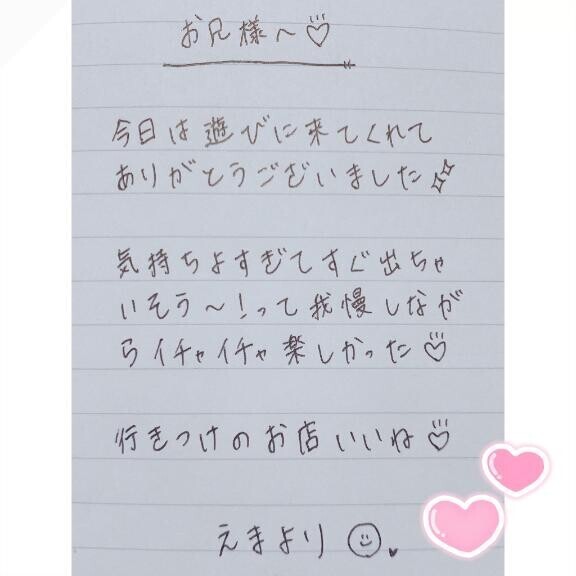 お兄様へ♡
今日は遊びに来てくれて
ありがとうございました✨
気持ちよすぎてすぐ出ちゃ
いそう〜!って我慢しなが
らイチャイチャ楽しかった♡
行きつけのお店いいね♡
えまより☺